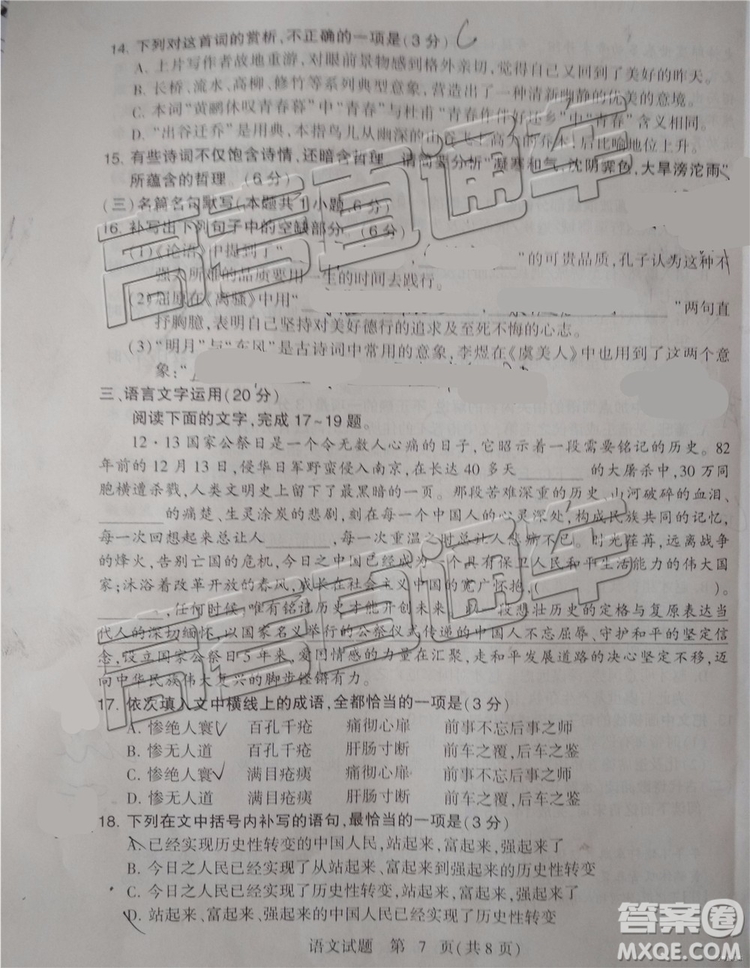 14. 下列对这首词的赏析,不正确的一项是(3 分) C
A. 上片写作者故地重游,对眼前景物感到格外亲切,似乎又回到了美好的昨天。
B. 长桥、流水、高柳、修竹等系列典型意象,营造出了一种清新幽静的优美的意境。
C. 本词“黄鹂休叹青春暮”中“青春”与杜甫“青春作伴好还乡”中“青春”含义相同。
D. “出谷迁乔”是用典,本指鸟儿从幽深的山谷飞上高大的乔木,后比喻地位上升。
15. 有些诗词不仅饱含诗情,还暗含哲理 请简要分析“凝寒和气,沈阴霁色,大旱滂沱雨”
所蕴含的哲理 (6 分)
(三)名篇名句默写(本题共1小题,6分)
16. 补写出下列句子中的空缺部分 (6分)
(1)《论语》中提到了“ ”的可贵品质,孔子认为这种不
强人所难的品质要用一生的时间去践行。
(2)屈原在《离骚》中用“ ”两句直
抒胸臆,表明自己坚持对美好德行的追求及至死不悔的心志。
(3)“明月”与“东风”是古诗词中常用的意象,李煜在《虞美人》中就写到了这两个意
象:“
三、语言文字运用(20 分)
阅读下面的文字,完成 17~19 题。
12·13 国家公祭日是一个令无数人心痛的日子,它昭示着一段需要铭记的历史。82
年前的 12 月 13 日,侵华日军野蛮侵入南京,在长达 40 多天________的大屠杀中,30 万同
胞横遭杀戮,人类文明史上留下了最黑暗的一页。那段苦难深重的历史,山河破碎的血泪、
________的痛楚、生灵涂炭的悲剧,刻在每一个中国人的心灵深处,构成民族共同的记忆,
每一次回想起来总让人________,每一次重温之时总让人悲痛不已。时光荏苒,远去战争
的烽火,告别亡国的危机,今日之中国已经成为一个具有保卫人民和平生活能力的伟大国
家;沐浴着改革开放的春风,成长在社会主义中国的宽广怀抱,( )。
________,任何时候,唯有铭记历史才能开创未来。这段悲壮历史的定格与复原表达当
代人的深切缅怀,以国家名义举行的公祭仪式传递的中国人不忘屈辱、守护和平的坚定信
念,设立国家公祭日 5 年来,爱国情感的力量在汇聚,走和平发展道路的决心坚定不移,迈
向中华民族伟大复兴的脚步铿锵有力。
17. 依次填入文中横线上的成语,全都恰当的一项是(3 分)
A. 惨绝人寰 百孔千疮 痛彻心扉 前事不忘后事之师
B. 惨无人道 百孔千疮 肝肠寸断 前车之覆,后车之鉴
C. 惨绝人寰 满目疮痍 痛彻心扉 前事不忘后事之师
D. 惨无人道 满目疮痍 肝肠寸断 前车之覆,后车之鉴
18. 下列在文中括号内补写的语句,最恰当的一项是(3 分)
A. 已经实现了历史性转变的中国人民,站起来,富起来,强起来了
B. 今日之人民已经实现了从站起来、富起来到强起来的历史性转变
C. 今日之人民已经实现了历史性转变,站起来,富起来,强起来了
D. 站起来,富起来,强起来的中国人民已经实现了历史性转变
语文试题 第 7 页(共 8 页)
高考直通车
高考直通车
答案圈
MXQE.COM